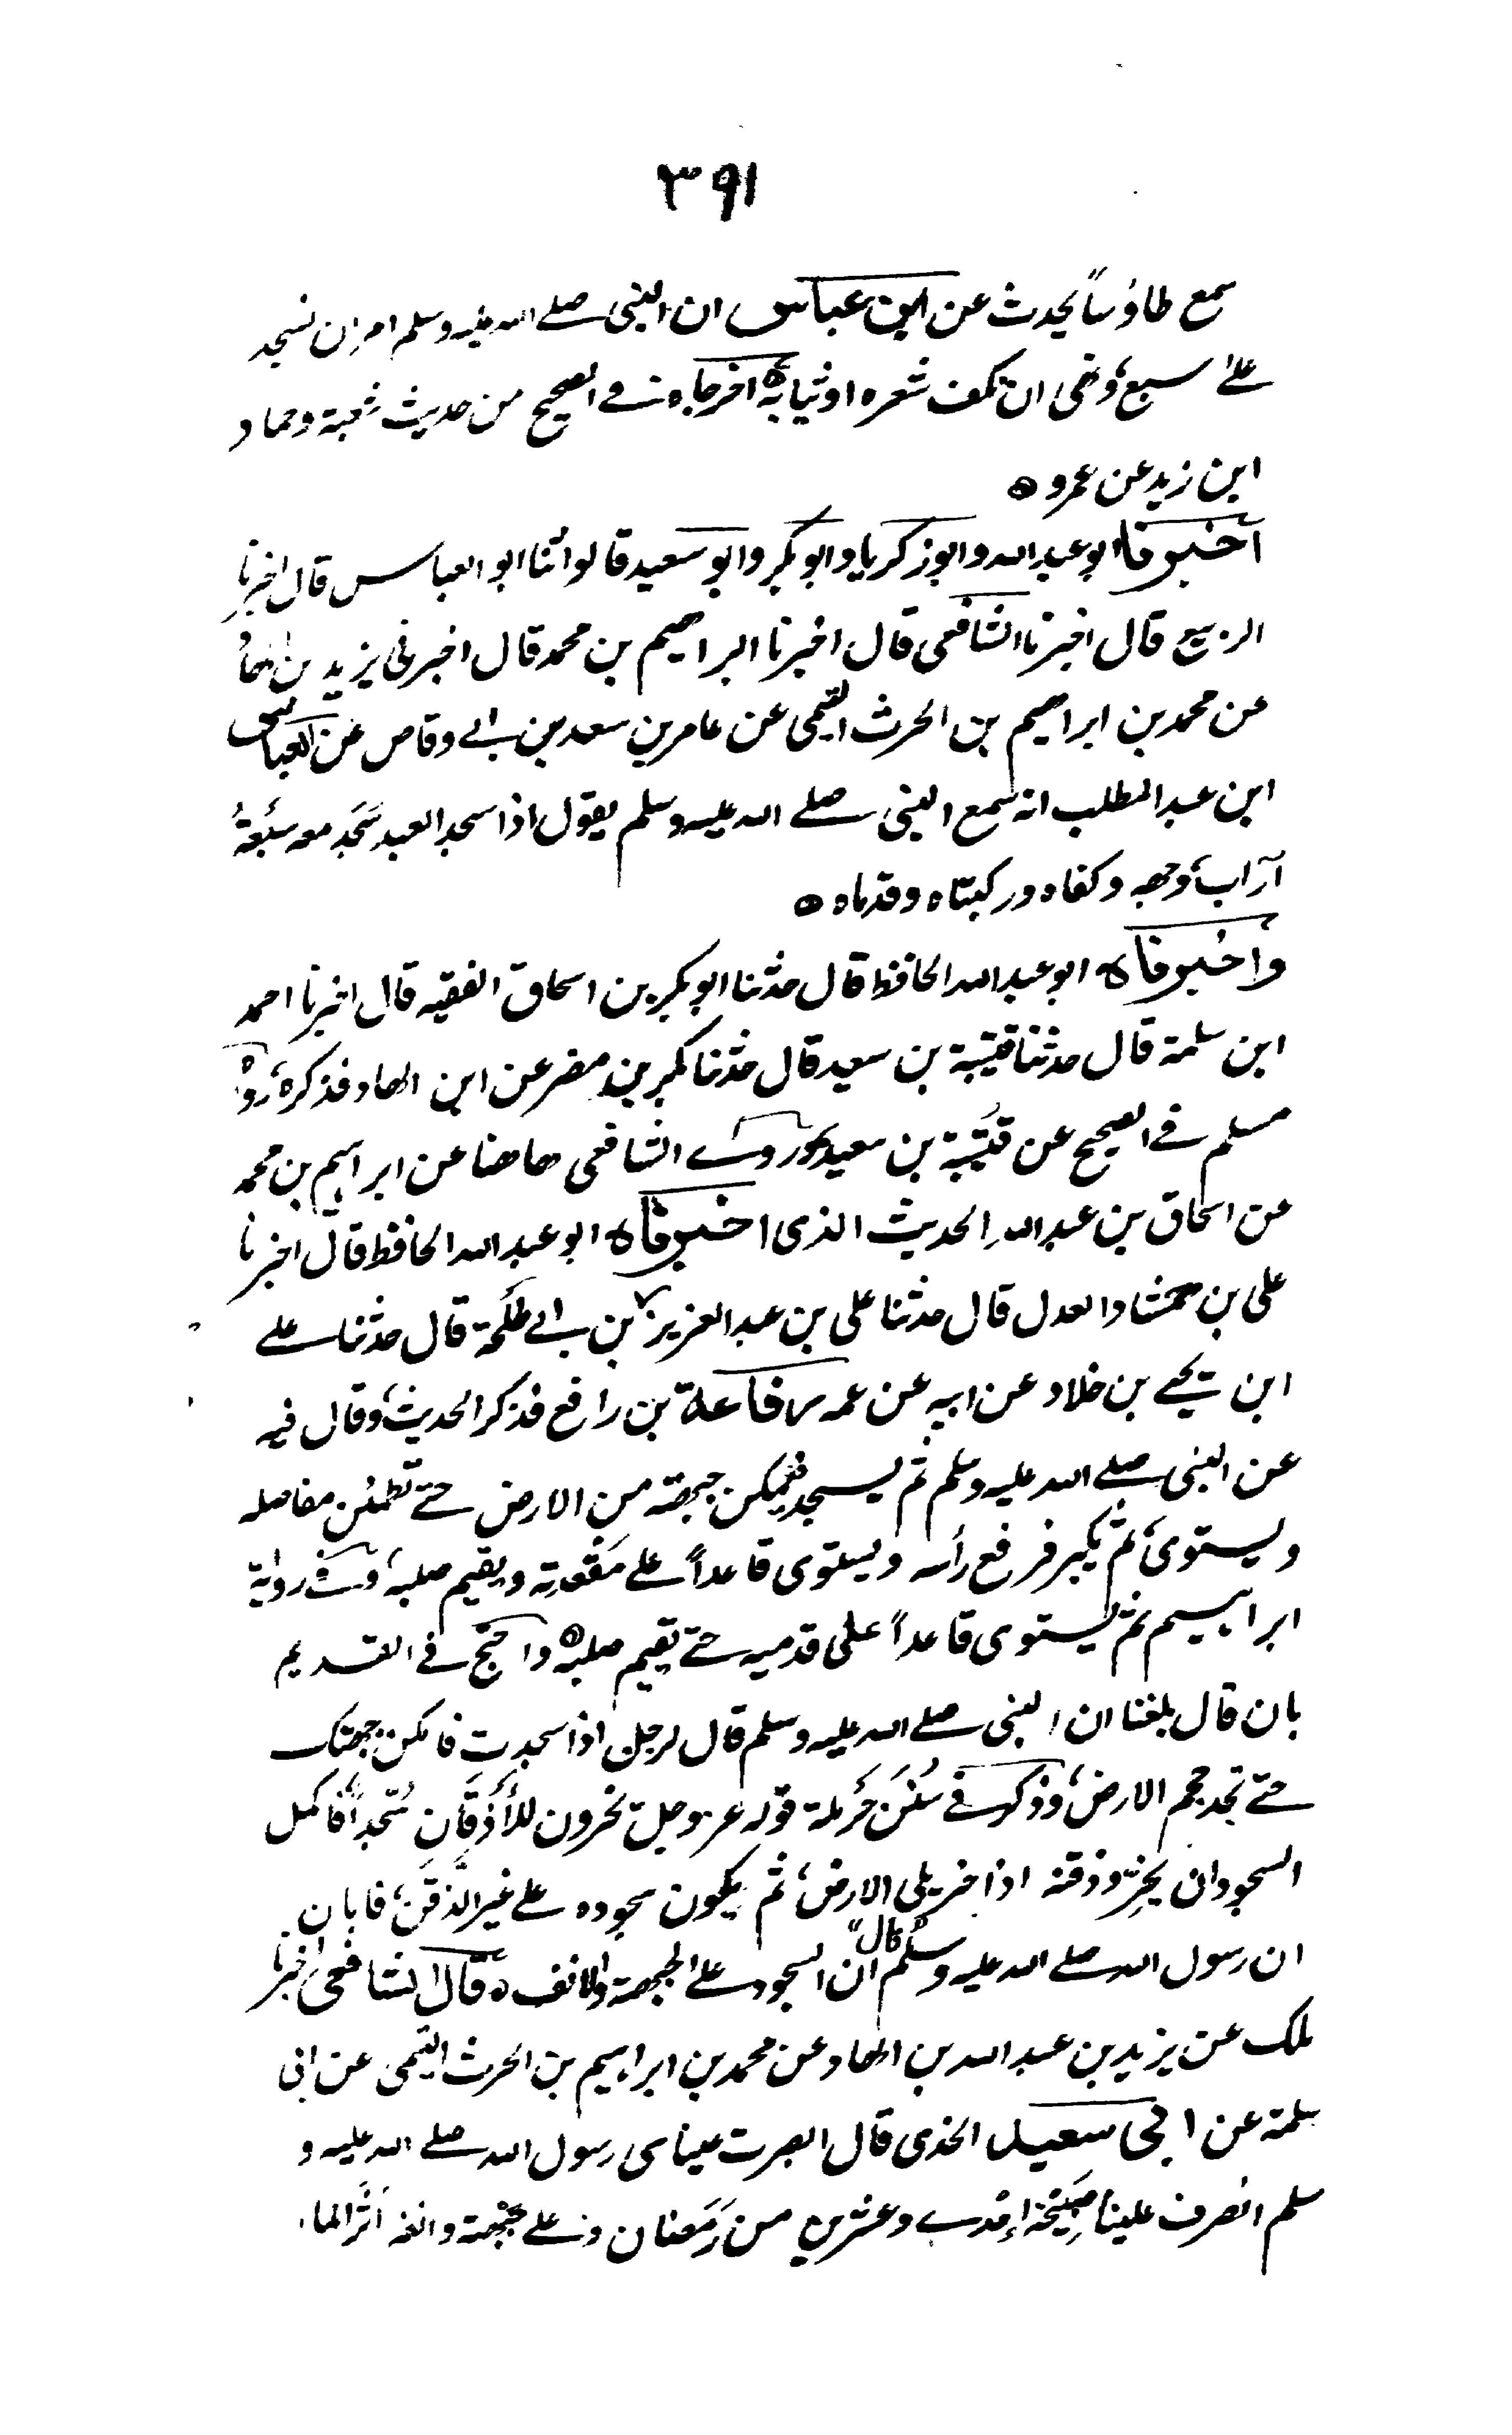 ٣٩١
سمع طاؤساً يحدث عن ابن عباس ان النبى صلى الله عليه وسلم امر ان نسجد
على سبع، ونهى ان نكف شعره او ثيابه ه اخرجاه في الصحيح من حديث شعبة وحماد
ابن زيد عن عمرو ه
اخبرنا ابو عبدالله وابو زكريا وابو بكر وابو سعيد قالوا ثنا ابو العباس قال اخبرنا
الربيع قال اخبرنا الشافعى قال اخبرنا ابراهيم بن محمد قال اخبرنى يزيد بن الهاد
عن محمد بن ابراهيم بن الحرث التيمى عن عامر بن سعد بن ابي وقاص عن العباس
ابن عبد المطلب انه سمع النبى صلے الله عليه وسلم يقول اذا سجد العبد سَجَد معه سَبْعَةُ
آرَاب، وجهه وكفاه وركبتاه وقدماه ه
واخبرناه ابو عبد الله الحافظ قال حدثنا ابو بكر بن اسحاق الفقيه قال اخبرنا احمد
ابن سلمة قال حدثنا قتيبة بن سعيد قال حدثنا بكر بن مضر عن ابن الهاد فذكره، رواه
مسلم في الصحيح عن قتيبة بن سعيد ه وروى الشافعى هاهنا عن ابراهيم بن محمد
عن اسحاق بن عبد اللهِ الحديث الذى اخبرناه ابو عبد الله الحافظ قال اخبرنا
على بن حمشاد العدل قال حدثنا على بن عبد العزيز بن ابي طلحة قال حدثنا علے
ابن يحيے بن خلاد عن ابيه عن عمه رفاعة بن رافع فذكر الحديث، وقال فيه
عن النبى صلے الله عليه وسلم ثم يسجد فيمكن جبهته من الارض حتے تطمئن مفاصله
ويستوى، ثم يكبر فرفع رأسه ويستوى قاعداً علے مَقْعَدته ويقيم صلبه، وفے رواية
ابراهيم ثم يستوى قاعداً على قدميه حتے يقيم صلبه ه واحتج في القديم
بان قال بلغنا ان النبى صلے الله عليه وسلم قال لرجل اذا سجدت فامكن جبهتك
حتے تجد حجم الارض، وذكر في سُنَن حَرْملة قوله عز وجل يخرون للأَذْقَانِ سُجّداً، فاكمل
السجود ان يخِرّ وذقنه اذا خر يلى الارض، ثم يكون سجوده علے غير الذقن، فابان
ان رسول الله صلے الله عليه وسلم قال ان السجود علے الجبهة والانف ه قال الشافعى اخبرنا
ملك عن يزيد بن عبد الله بن الهاد عن محمد بن ابراهيم بن الحرث التيمى عن ابى
سلمة عن ابى سعيد الخدى قال ابصرت عيناى رسول الله صلے الله عليه و
سلم انصرف علينا صَبِيْحَة إحْدٰے وعشرين من رَمَضان وعلے جبهته وانفه اَثَرُ الماء